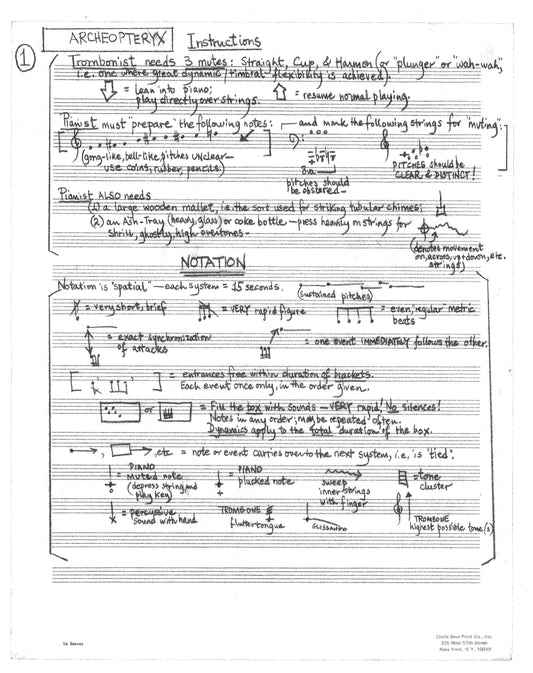 1
ARCHEOPTERYX Instructions
Trombonist needs 3 mutes: Straight, Cup, & Harmon (or "plunger" or "wah-wah,"
i.e. one where great dynamic/timbral flexibility is achieved).
= Lean into piano; = resume normal playing.
play directly over strings.
Pianist must "prepare" the following notes: — and mark the following strings for "muting":
(gong-like, bell-like, pitches unclear—
use coins, rubber, pencils)
8va
pitches should
be obscured—
PITCHES should be
CLEAR & DISTINCT!
Pianist ALSO needs
(1) a large wooden mallet, i.e. the sort used for striking tubular chimes;
(2) an Ash-Tray (heavy, glass) or coke bottle — press heavily on strings for
shrill, ghostly, high overtones—
(denotes movement
on, across, up & down, etc.
strings)
NOTATION
Notation is "spatial" — each system = 15 seconds.
(sustained pitches)
= very short, brief = VERY rapid figure = even, "regular" metric
beats
= exact synchronization
of attacks
= one event IMMEDIATELY follows the other.
= entrances free within duration of brackets.
Each event once only, in the order given.
or = Fill the box with sounds — VERY rapid! NO silences!
Notes in any order; may be repeated often.
Dynamics apply to the total duration of the box.
, etc = note or event carries over to the next system, i.e. is "tied".
PIANO
= muted note
(depress string and
play key)
PIANO
= plucked note
= sweep
inner strings
with finger
= tone
cluster
= percussive
sound with hand
TROMBONE
fluttertongue
GLISSANDO
TROMBONE
highest possible tone(s)
14 Staves
Circle Blue Print Co., Inc.
225 West 57th Street
New York, N.Y. 10019